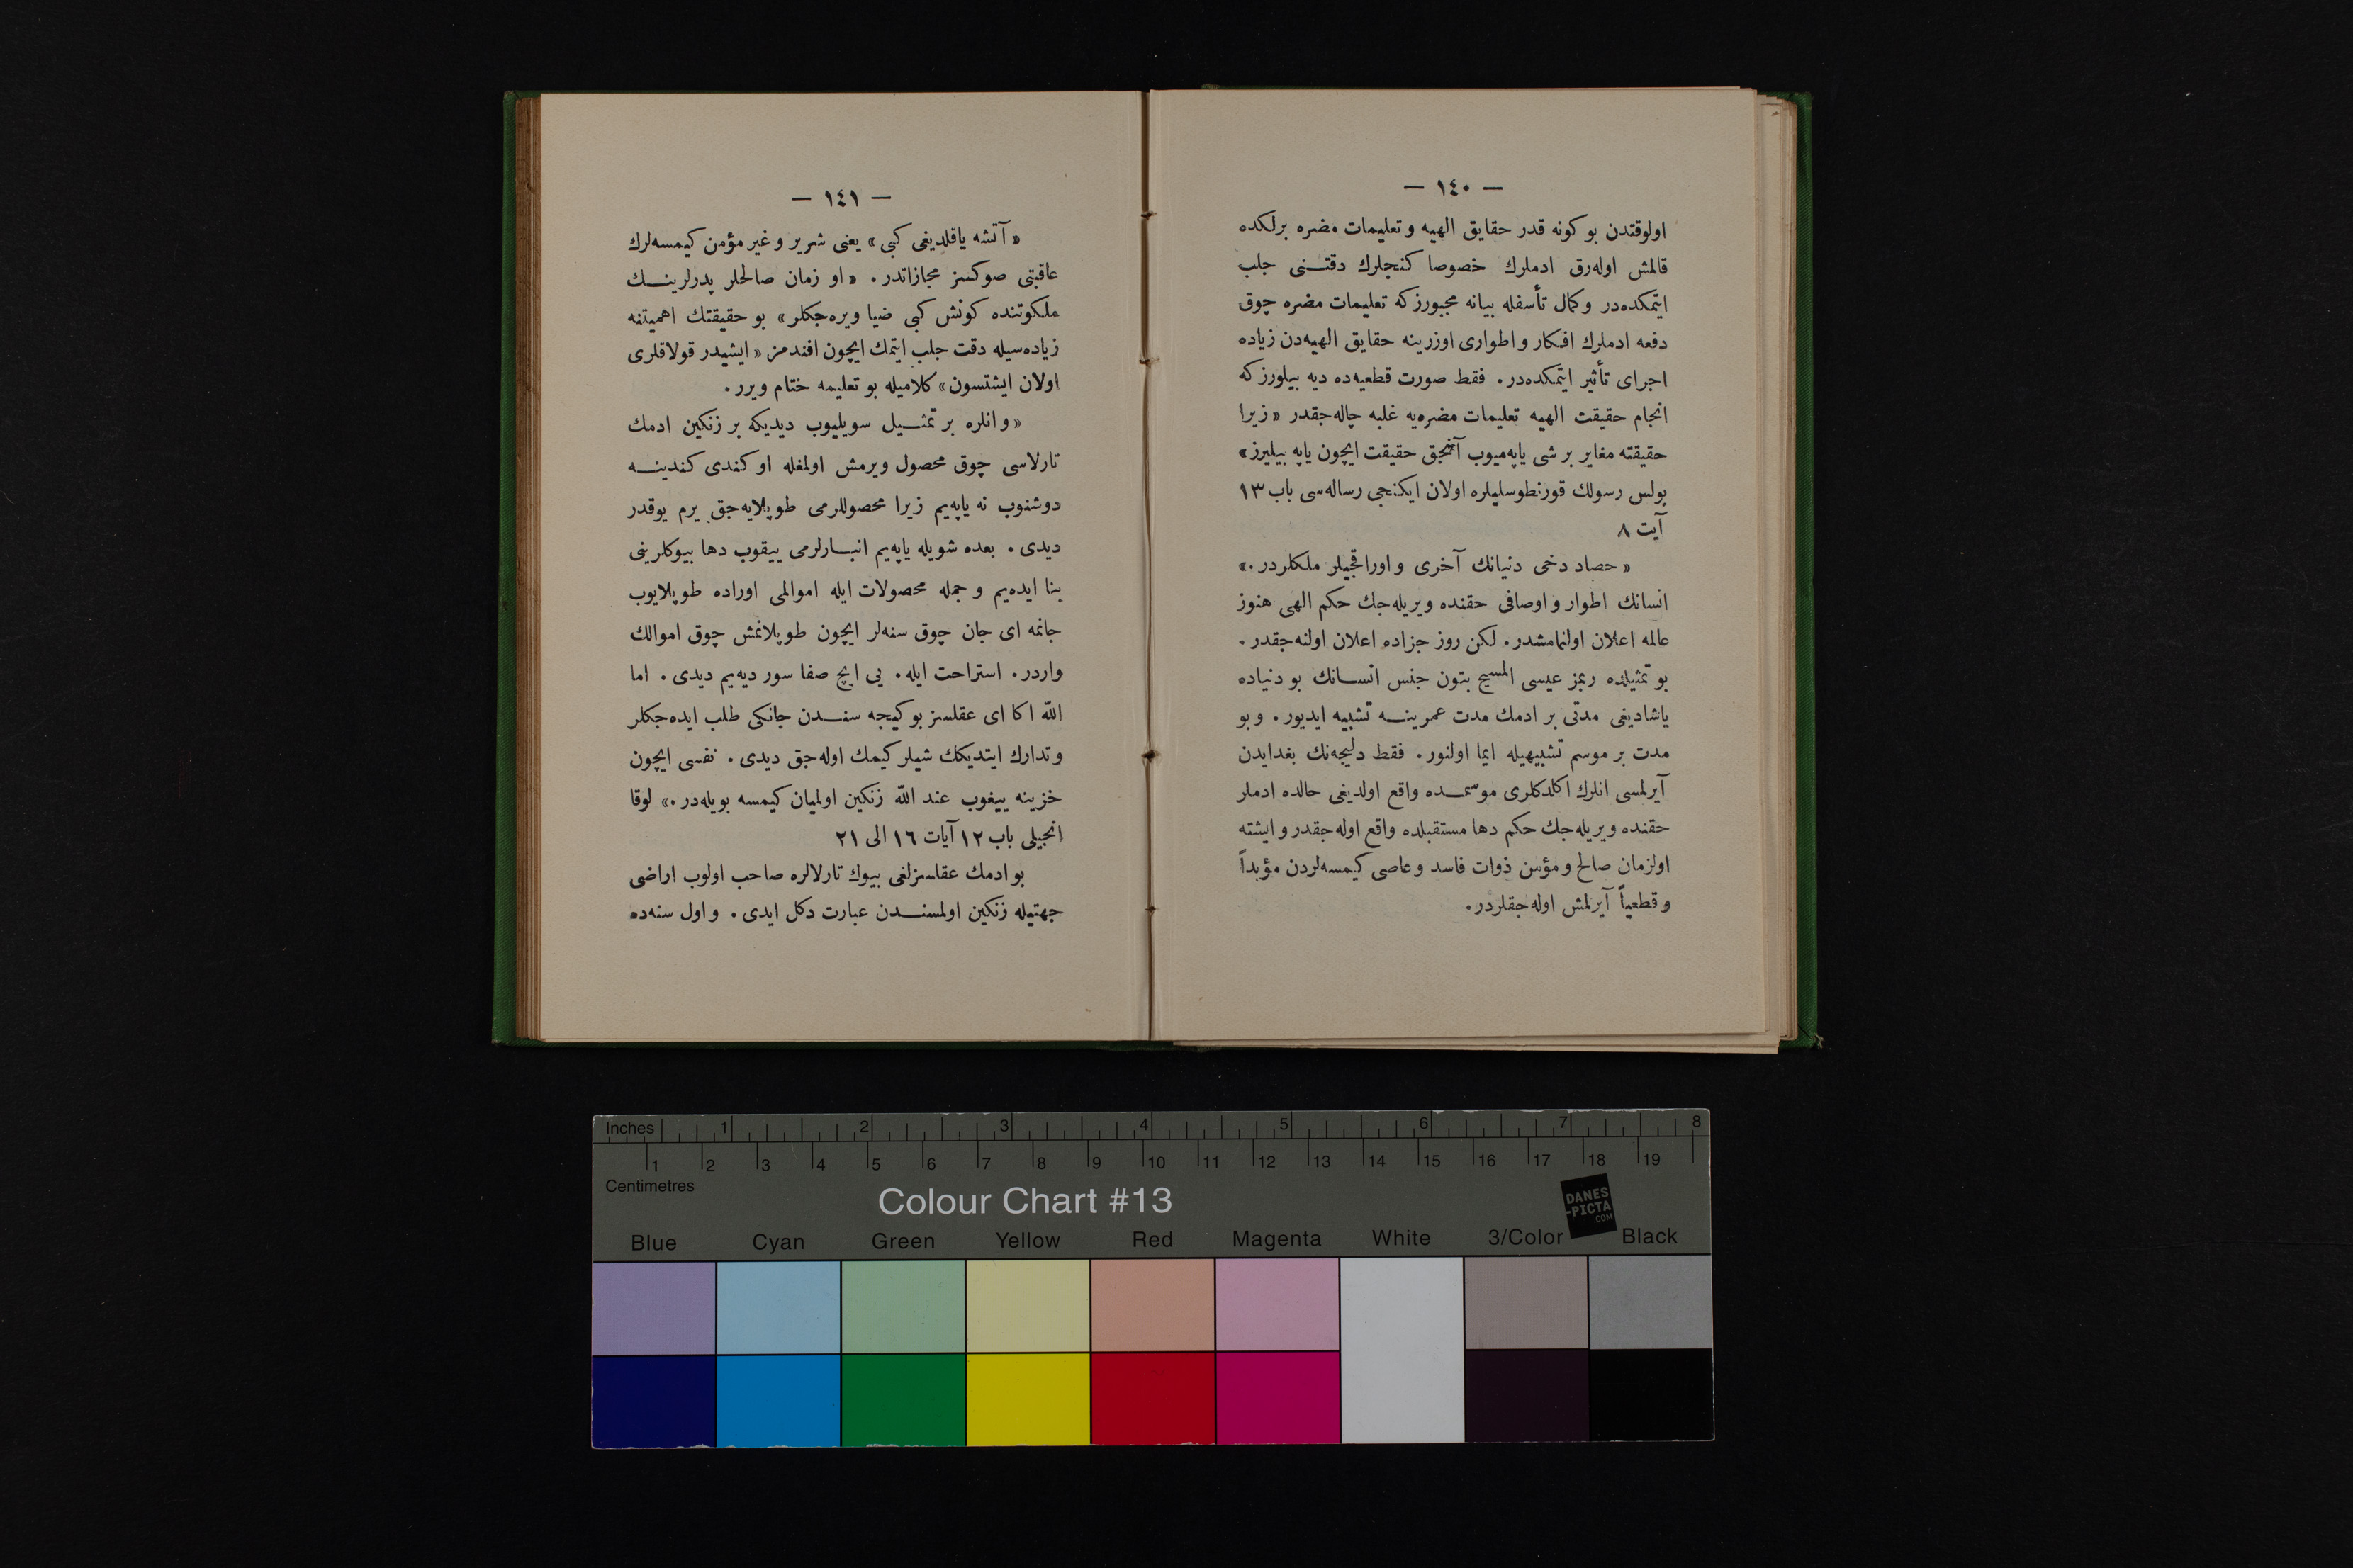 — ١٤٠ —
اولوقتدن بو كونه قدر حقايق الهيه و تعليمات مضره برلكده
قالمش اوله‌رق ادملرك خصوصا كنجلرك دقتـنى جلب
ايتمكده‌در وكمال تأسفله بيانه مجبورز كه تعليمات مضره چوق
دفعه ادملرك افكار و اطوارى اوزرينه حقايق الهيه‌دن زياده
اجراى تأثير ايتمكده‌در. فقط صورت قطعيه‌ده ديه بيلورز كه
انجام حقيقت الهيه تعليمات مضره‌يه غلبه چاله‌جقدر «زيرا
حقيقته مغاير بر شى ياپه‌ميوب آنجق حقيقت ايچون ياپه بيليرز»
بولس رسولك قورنطوسليلره اولان ايكنجى رساله‌سى باب ١٣
آيت ٨
«حصاد دخى دنيانك آخرى و اوراقجيلر ملكلردر.»
انسانك اطوار و اوصافى حقنده ويريله‌جك حكم الهى هنوز
عالمه اعلان اولنمامشدر. لكن روز جزاده اعلان اولنه‌جقدر.
بو تمثيلده ربمز عيسى المسيح بتون جنس انسـانك بو دنياده
ياشاديغى مدتى بر ادمك مدت عمرينـه تشبيه ايديور. و بو
مدت بر موسم تشبيهيله ايما اولنور. فقط دليجه‌نك بغدايدن
آيرلمسى انلرك اكلدكلرى موسمـده واقع اولديغى حالده ادملر
حقنده ويريله‌جك حكم دها مستقبلده واقع اوله‌جقدر و ايشته
اولزمان صالح و مؤمن ذوات فاسد و عاصى كيمسه‌لردن مؤبداً
و قطعياً آيرلمش اوله‌جقلردر.
— ١٤١ —
«آتشه ياقلديغى كبى» يعنى شرير و غير مؤمن كيمسه‌لرك
عاقبتى صوكسز مجازاتدر. «او زمان صالحلر پدرلرينـك
ملكوتنده كونش كبى ضيا ويره‌جكلر» بو حقيقتك اهميتنه
زياده‌سيله دقت جلب ايتمك ايچون افندمز «ايشيدر قولاقلرى
اولان ايشتسون» كلاميله بو تعليمه ختام ويرر.
«و انلره بر تمثـيل سويليوب ديديكه بر زنكين ادمك
تارلاسى چوق محصول ويرمش اولمغله او كندى كندينـه
دوشنوب نه ياپه‌يم زيرا محصوللرمى طوپلايه‌جق يرم يوقدر
ديدى. بعده شويله ياپه‌يم انبـارلرمى ييقوب دها بيوكلرينى
بنا ايده‌يم و جمله محصولات ايله اموالمى اوراده طوپلايوب
جانمه اى جان چوق سنه‌لر ايچون طوپلانمش چوق اموالك
واردر. استراحت ايله. يى ايچ صفا سور ديه‌يم ديدى. اما
اللّه اكا اى عقلسز بو كيجه سنـدن جانكى طلب ايده‌جكلر
و تدارك ايتديكك شيلر كيمك اوله‌جق ديدى. نفسى ايچون
خزينه ييغوب عند اللّه زنكين اولميان كيمسه بويله‌در.» لوقا
انجيلى باب ١٢ آيات ١٦ الى ٢١
بو ادمك عقلسزلغى بيوك تارلالره صاحب اولوب اراضى
جهتيله زنكين اولمسنـدن عبارت دكل ايدى. و اول سنه‌ده
Inches 1 2 3 4 5 6 7 8
1 2 3 4 5 6 7 8 9 10 11 12 13 14 15 16 17 18 19
Centimetres
Colour Chart #13
DANES
-PICTA
.COM
Blue Cyan Green Yellow Red Magenta White 3/Color Black